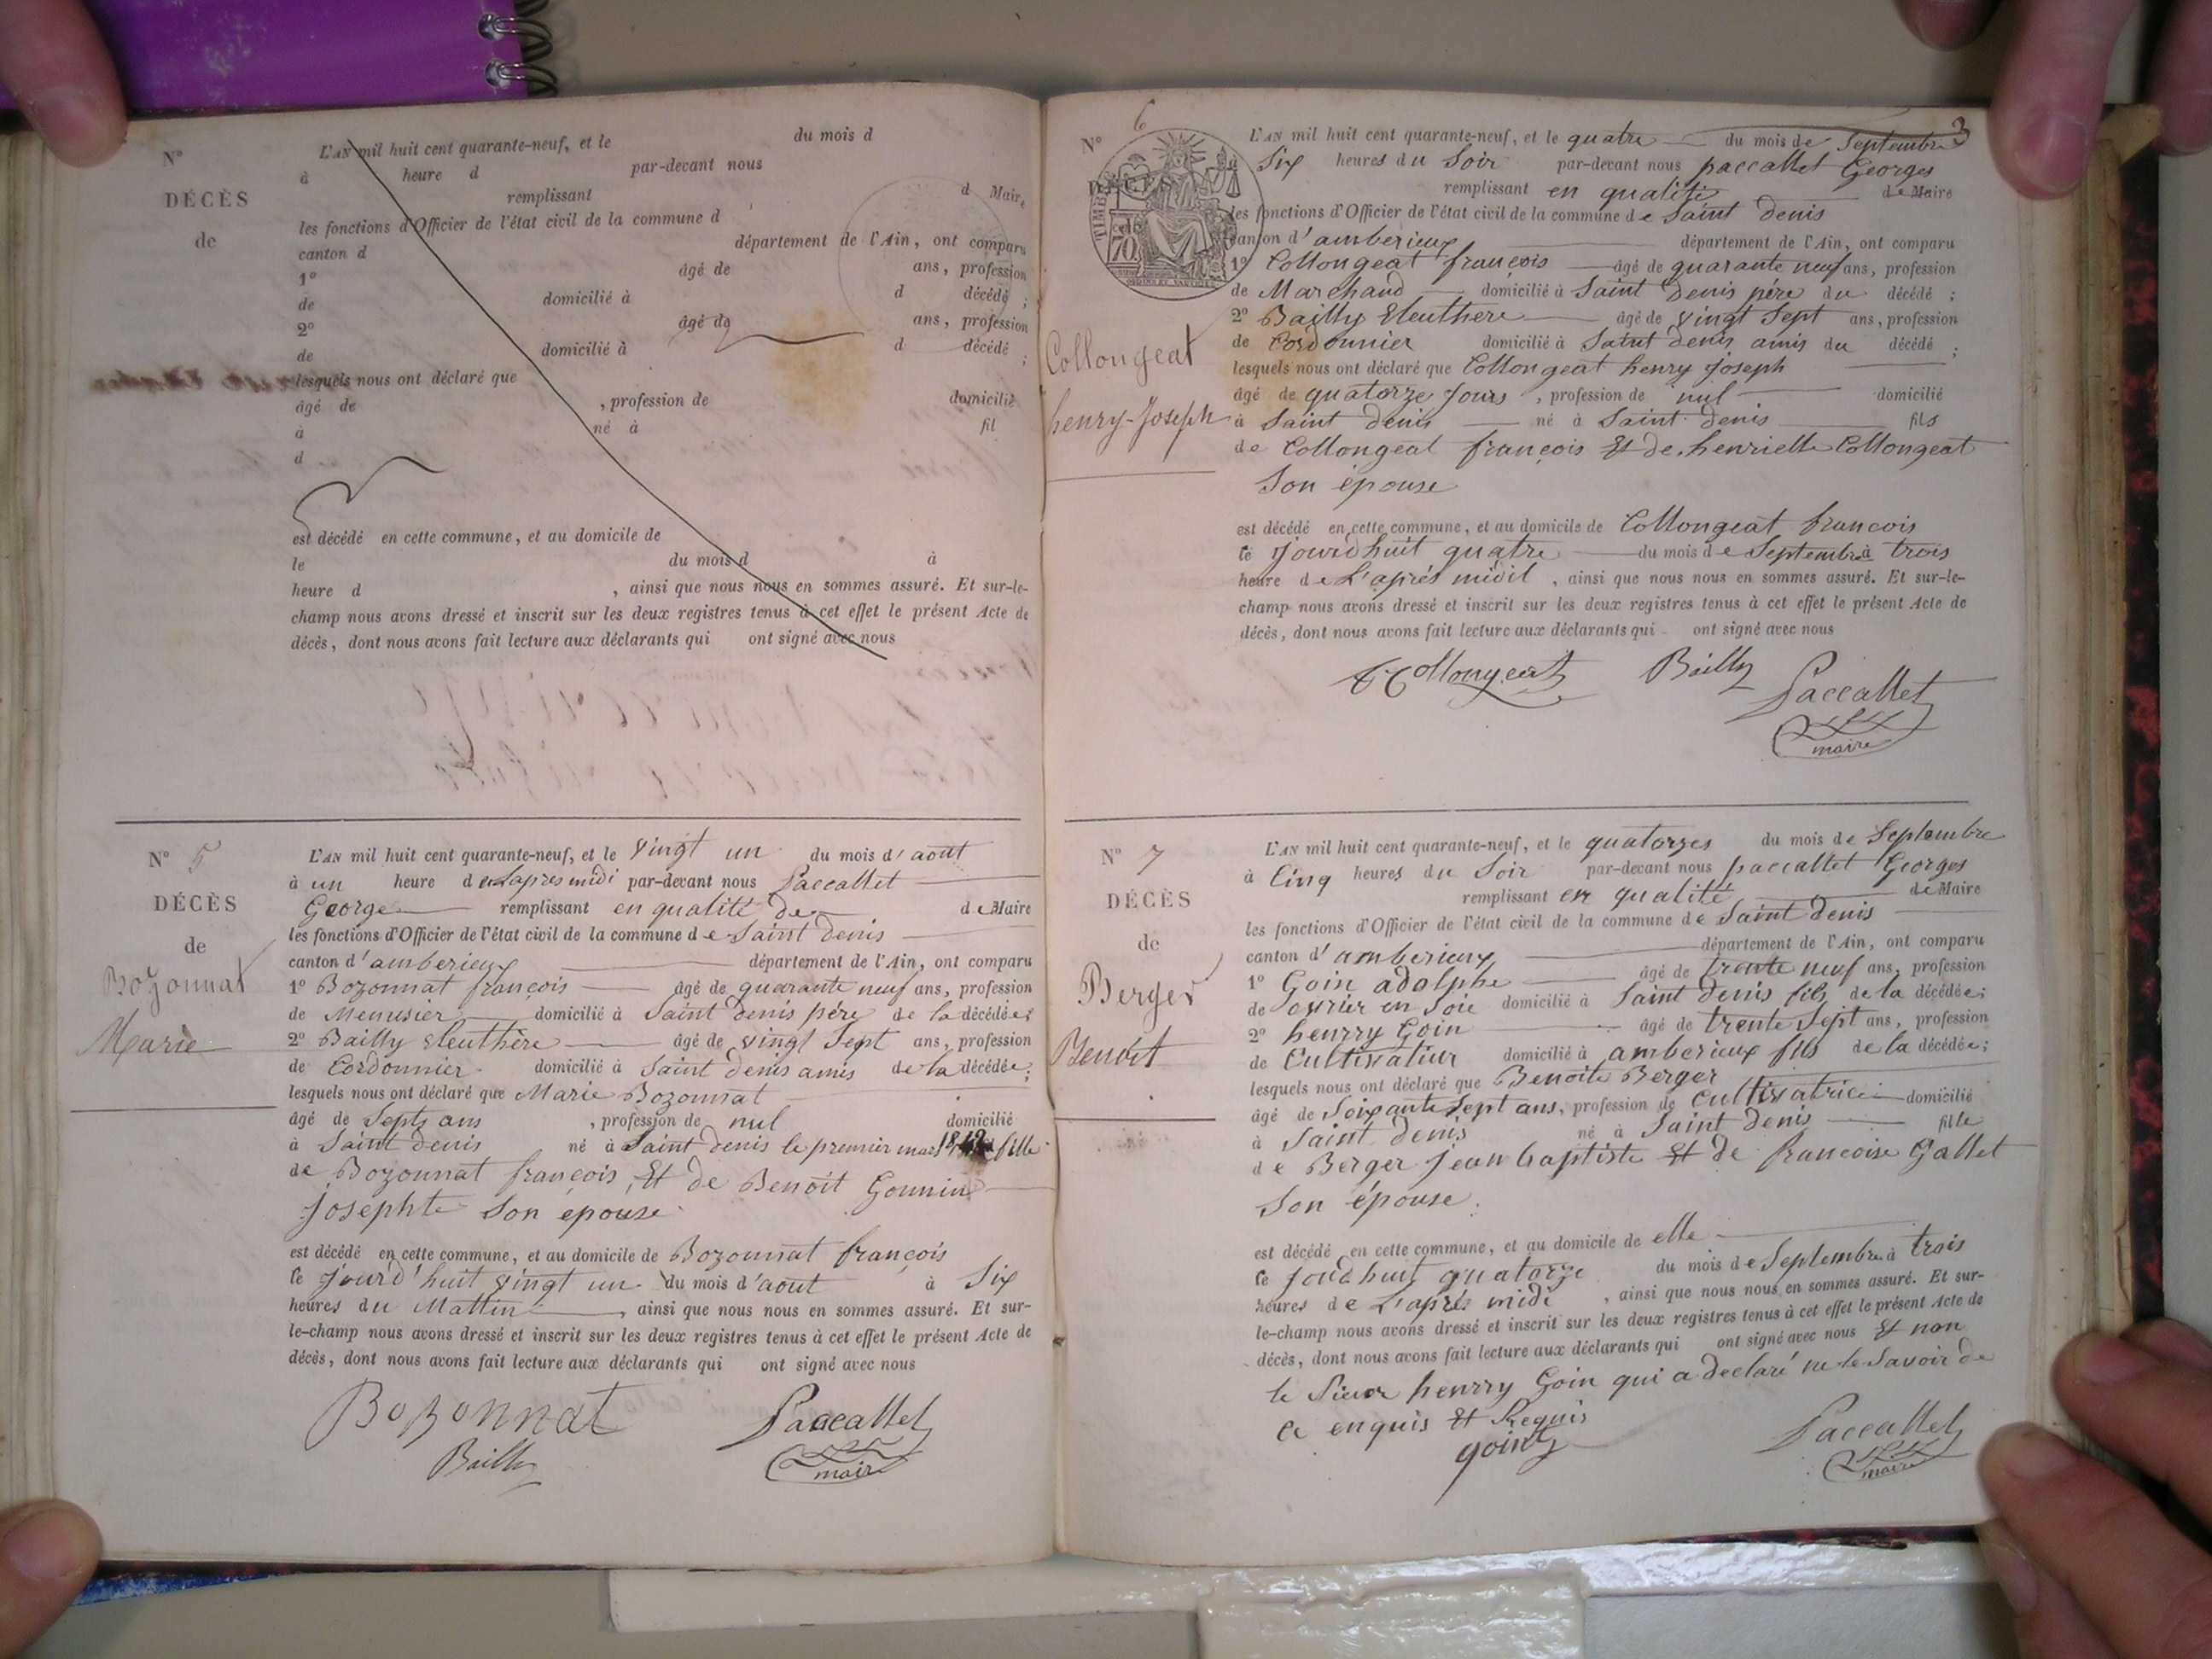 N°
DÉCÈS
de
L'AN mil huit cent quarante-neuf, et le du mois d
à heure d par-devant nous
remplissant d Maire
les fonctions d'Officier de l'état civil de la commune d
canton d département de l'Ain, ont comparu
1° âgé de ans, profession
de domicilié à d décédé ;
2° âgé de ans, profession
de domicilié à d décédé ;
lesquels nous ont déclaré que
âgé de , profession de domicilié
à né à fil
d
est décédé en cette commune, et au domicile de
le du mois d à
heure d , ainsi que nous nous en sommes assuré. Et sur-le-
champ nous avons dressé et inscrit sur les deux registres tenus à cet effet le présent Acte de
décès, dont nous avons fait lecture aux déclarants qui ont signé avec nous
N° 5
DÉCÈS
de
Bozonnat
Marie
L'AN mil huit cent quarante-neuf, et le vingt un du mois d'août
à un heure de Lapres midi par-devant nous Paccallet
George remplissant en qualité de de Maire
les fonctions d'Officier de l'état civil de la commune de Saint denis
canton d'amberieux département de l'Ain, ont comparu
1° Bozonnat françois âgé de quarante neuf ans, profession
de Menusier domicilié à Saint denis pére de la décédée;
2° Bailly Eleuthère âgé de vingt Sept ans, profession
de Cordonnier domicilié à Saint denis amis de la décédée;
lesquels nous ont déclaré que Marie Bozonnat
âgé de Septs ans , profession de nul domicilié
à Saint denis né à Saint denis le premier mars 1842 fille
de Bozonnat françois, Et de Benoit Gounin
Josephte Son epouse
est décédé en cette commune, et au domicile de Bozonnat françois
le jourd'huit vingt un du mois d'aout à Six
heures du Mattin , ainsi que nous nous en sommes assuré. Et sur-
le-champ nous avons dressé et inscrit sur les deux registres tenus à cet effet le présent Acte de
décès, dont nous avons fait lecture aux déclarants qui ont signé avec nous
Bozonnat Paccallet
Bailly maire
3
N° 6
DÉCÈS
de
TIMBRE
70
Collongeat
henry-Joseph
L'AN mil huit cent quarante-neuf, et le quatre du mois de Septembre
à Six heures du Soir par-devant nous paccallet Georges
remplissant en qualité de Maire
les fonctions d'Officier de l'état civil de la commune de Saint denis
canton d'amberieux département de l'Ain, ont comparu
1° Collongeat françois âgé de quarante neuf ans, profession
de Marchand domicilié à Saint denis pére du décédé ;
2° Bailly Eleuthere âgé de vingt Sept ans, profession
de Cordonnier domicilié à Saint denis amis du décédé ;
lesquels nous ont déclaré que Collongeat henry joseph
âgé de quatorze Jours , profession de nul domicilié
à Saint denis né à Saint denis fils
de Collongeat françois Et de henriette Collongeat
Son épouse
est décédé en cette commune, et au domicile de Collongeat francois
le jourdhuit quatre du mois de Septembre à trois
heure de L'aprés midit , ainsi que nous nous en sommes assuré. Et sur-le-
champ nous avons dressé et inscrit sur les deux registres tenus à cet effet le présent Acte de
décès, dont nous avons fait lecture aux déclarants qui ont signé avec nous
Collongeat Bailly Paccallet
maire
N° 7
DÉCÈS
de
Berger
Benoit
L'AN mil huit cent quarante-neuf, et le quatorzes du mois de Septembre
à Cinq heures du Soir par-devant nous paccallet Georges
remplissant en qualité de Maire
les fonctions d'Officier de l'état civil de la commune de Saint denis
canton d'amberieux département de l'Ain, ont comparu
1° Goin adolphe âgé de trente neuf ans, profession
de ovrier en Soie domicilié à Saint denis fils de la décédée;
2° henrry Goin âgé de trente Sept ans, profession
de Cultivatiur domicilié à amberieux fils de la décédée;
lesquels nous ont déclaré que Benoite Berger
âgé de Soixante Sept ans, profession de Cultivatrice domicilié
à Saint denis né à Saint denis fille
de Berger jean baptiste Et de francoise Gallet
Son épouse
est décédé en cette commune, et au domicile de elle
le Joudhuit quatorze du mois de Septembre à trois
heures de L'aprés midi , ainsi que nous nous en sommes assuré. Et sur-
le-champ nous avons dressé et inscrit sur les deux registres tenus à cet effet le présent Acte de
décès, dont nous avons fait lecture aux déclarants qui ont signé avec nous Et non
le Sieur henrry Goin qui a declaré ne le Savoir de
ce enquis Et Requis
goint Paccallet
maire